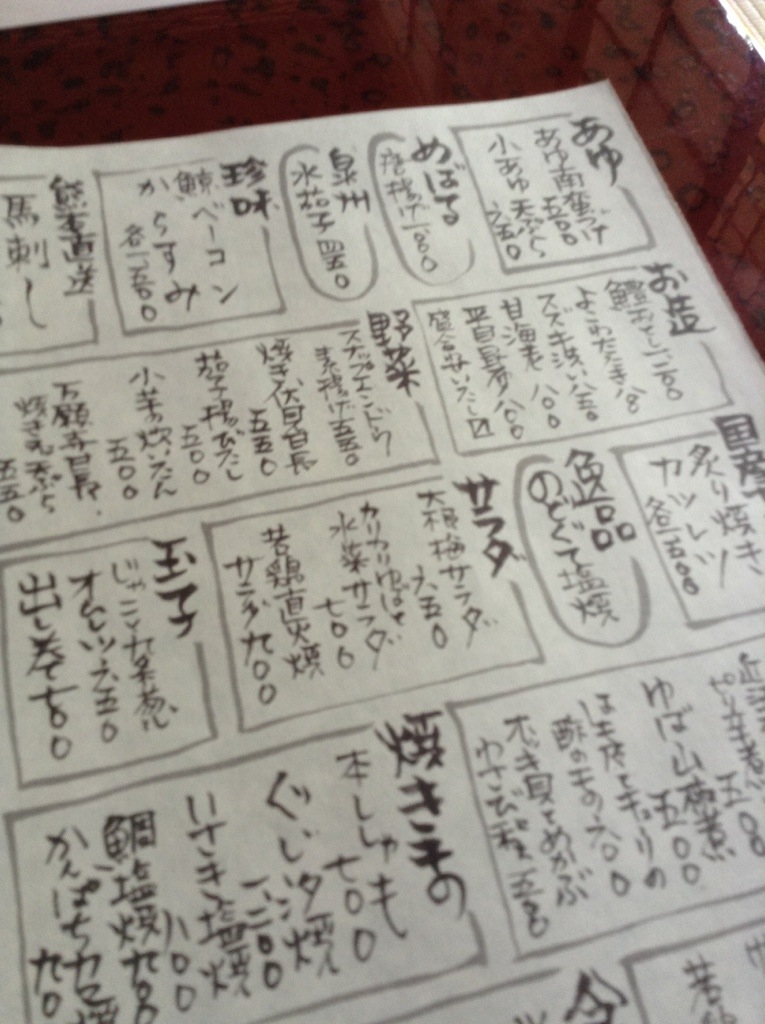 あゆ
あゆ南蛮づけ
五〇〇
小あゆ天ぷら
六五〇
めばる
唐揚げ一八〇〇
泉州
水茄子四五〇
珍味
鯨ベーコン
からすみ
各一、五〇〇
熊本直送
馬刺し
お造
よこわたたき
スズキ洗い八五〇
甘海老 八〇〇
平貝 八〇〇
盛合せいたし〼
野菜
スナップエンドウ
素揚げ五五〇
焼き伏見唐辛子
五五〇
茄子揚びたし
五〇〇
小芋の炊いたん
五〇〇
万願寺
焼き又天ぷら
五五〇
国産
炙り焼き
カツレツ
各一五〇〇
逸品
のどぐろ塩焼
サラダ
大根梅サラダ
六五〇
カリカリゆばと
水菜サラダ
七〇〇
若鶏直火焼
サラダ九〇〇
玉子
じゃこと九条葱
オムレツ六五〇
出し巻七〇〇
五〇〇
ゆば山椒煮
五〇〇
酢のもの六〇〇
ホッキ貝とめかぶ
わさび和え五五〇
焼きもの
本ししゃも
七〇〇
ぐじ汐焼
一、二〇〇
いさき塩焼
八〇〇
鯛塩焼九〇〇
かんぱちカマ焼
九〇〇